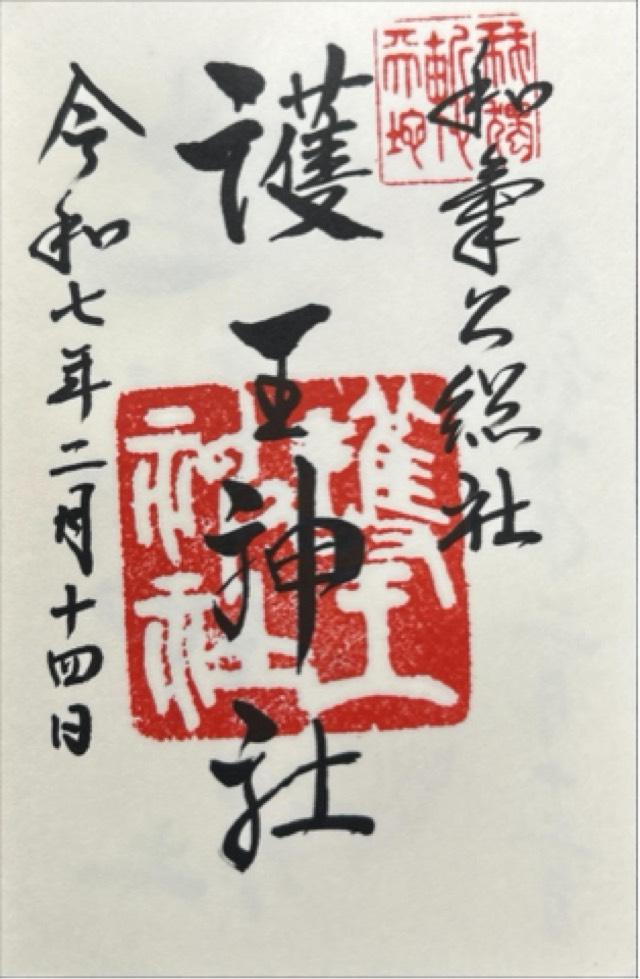 和氣公総社
護王神社
護王神社
令和七年二月十四日